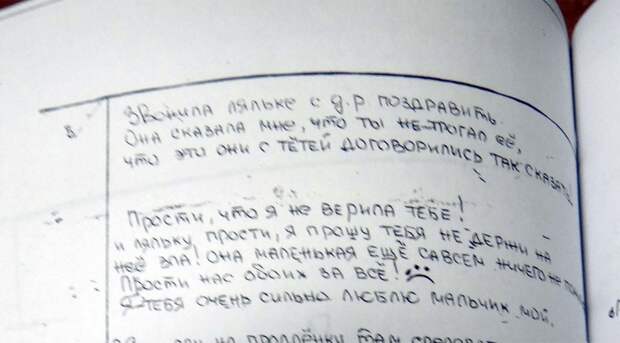 8.
Звонила ляльке с д.р. поздравить.
Она сказала мне, что ты не трогал её,
что это они с тётей договорились так сказать!
Прости, что я не верила тебе!
и ляльку, прости, я прошу тебя не держи на
неё зла! Она маленькая ещё савсем ничего не
Прости нас обоих за всё!
Я тебя очень сильно люблю мальчик мой.
там